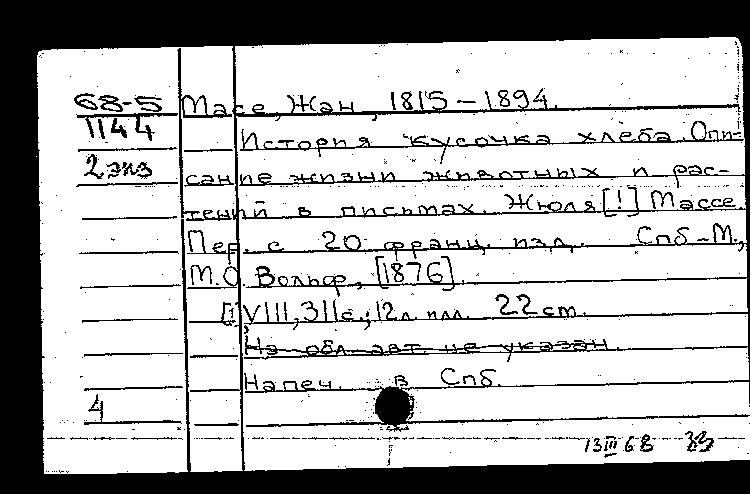 68-5 Масе, Жан, 1815-1894.
1144 История кусочка хлеба. Опи-
2 экз сание жизни животных и рас-
тений в письмах. Жюля [!] Массе.
Пер. с 20 франц. изд. Спб-М.,
М.О. Вольф, [1876].
[1], VIII, 311 с.; 12 л. илл. 22 см.
На обл. авт. не указан.
Напеч. в Спб.
4
13 III 68